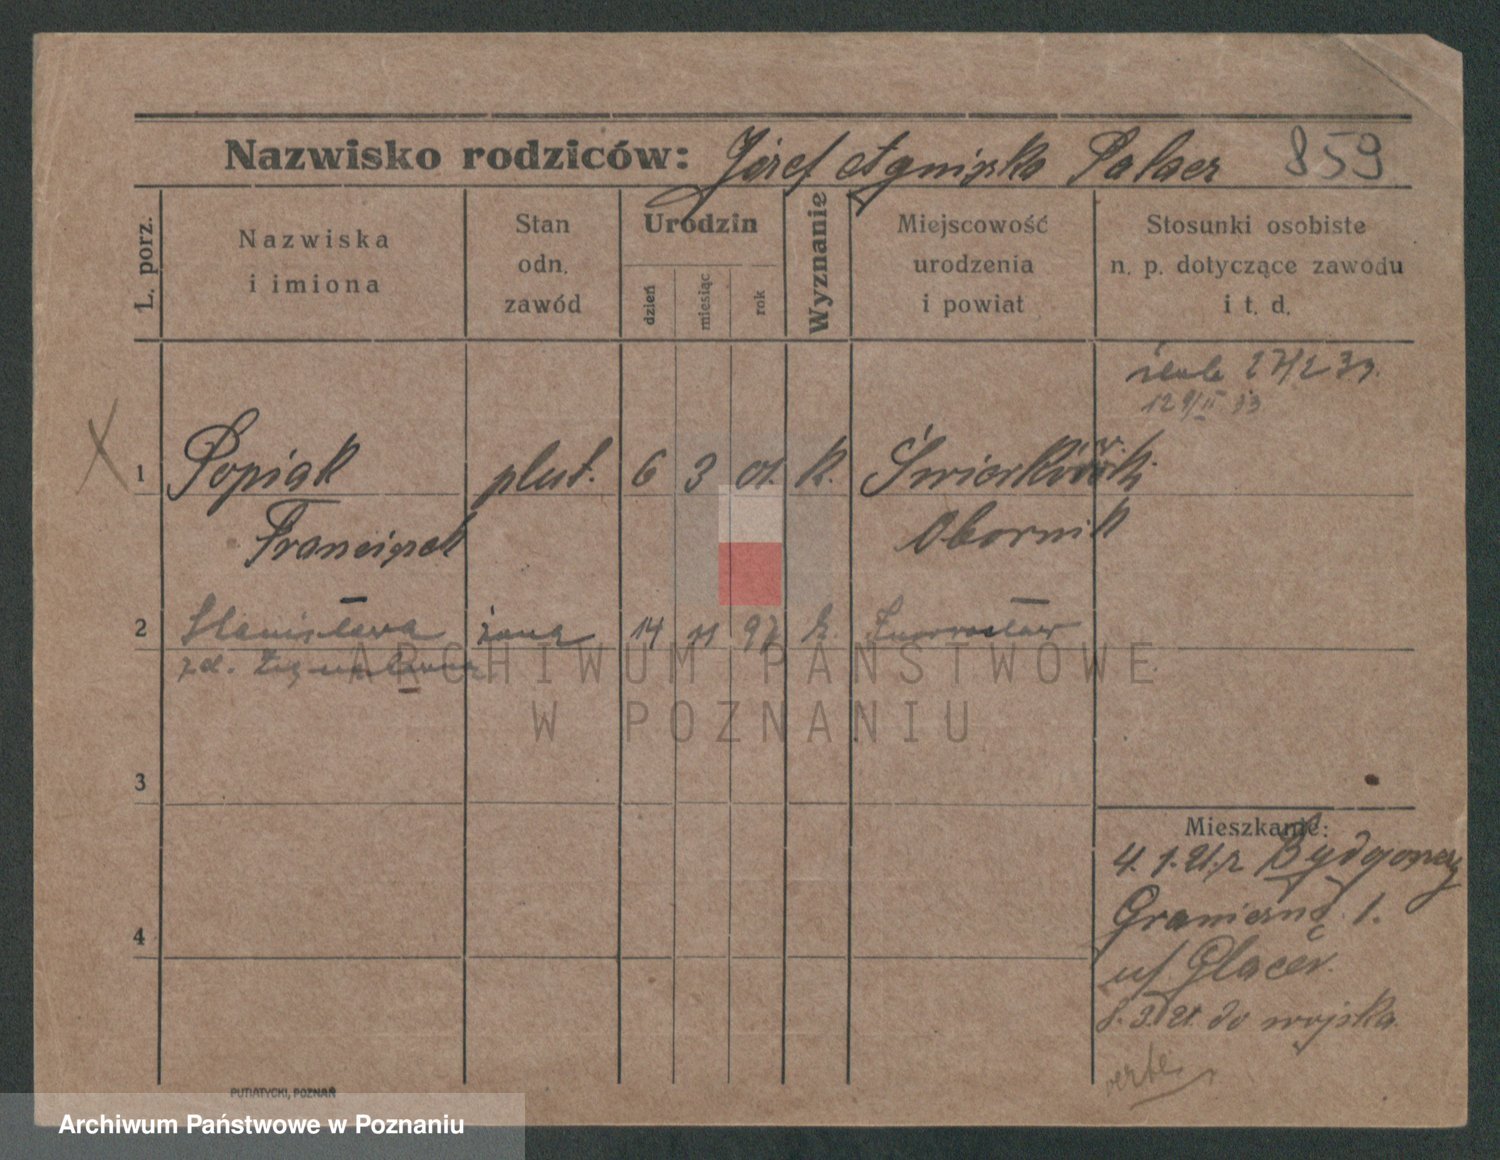 Nazwisko rodziców: Józef Agnieszka Palacz 859
L. porz.
Nazwiska i imiona
Stan odn. zawód
Urodzin
dzień
miesiąc
rok
Wyznanie
Miejscowość urodzenia i powiat
Stosunki osobiste n. p. dotyczące zawodu i t. d.
1 Popiak plut. 6 3 01. k.
Franciszek Obornik
2 Stanisława żona 14 11 97 k. Inowrocław
zd.
ARCHIWUM PAŃSTWOWE
W POZNANIU
3
Mieszkanie:
4. 1. 21. z Bydgoszczy
Graniczna 1.
4
Glacer
8. 3. 21. do wojska
verte
PUTIATYCKI, POZNAŃ
Archiwum Państwowe w Poznaniu